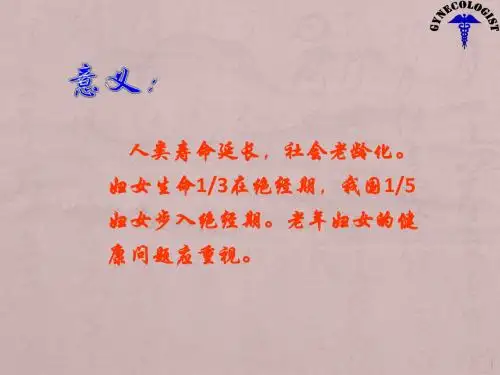 GYNECOLOGIST
意义：
人类寿命延长，社会老龄化。
妇女生命1/3在绝经期，我国1/5
妇女步入绝经期。老年妇女的健
康问题应重视。